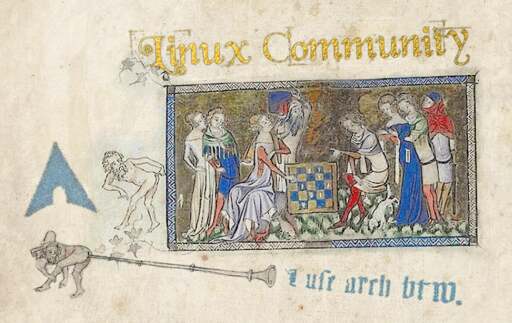 Linux Community
I use arch btw.